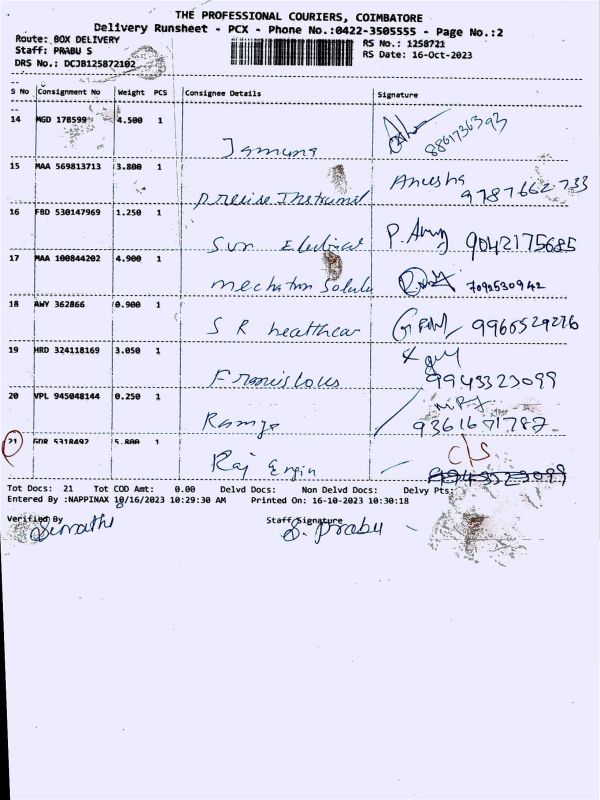 THE PROFESSIONAL COURIERS, COIMBATORE
Delivery Runsheet - PCX - Phone No.:0422-3505555 - Page No.:2
Route: BOX DELIVERY
RS No.: 1258721
Staff: PRABU S
RS Date: 16-Oct-2023
DRS No.: DCJB125872102
S No Consignment No Weight PCS Consignee Details Signature
14 MGD 178599 4.500 1
Jamuna 8861736393
15 MAA 569813713 3.800 1
Precise Instrument Anusha 9787662733
16 FBD 530147969 1.250 1
Sun Electrical P. 9042175685
17 MAA 100844202 4.900 1
Mechatron 7090530942
18 AWY 362866 0.900 1
S R healthcar 9966529276
19 HRD 324118169 3.050 1
9943323099
20 VPL 945048144 0.250 1
Ramya 9361671787
21 GDR 5318492 5.800 1 C/S
Raj Engin 9943323099
Tot Docs: 21 Tot COD Amt: 0.00 Delvd Docs: Non Delvd Docs: Delvy Pts:
Entered By :NAPPINAX 10/16/2023 10:29:30 AM Printed On: 16-10-2023 10:30:18
Verified By Staff Signature
S. Prabu